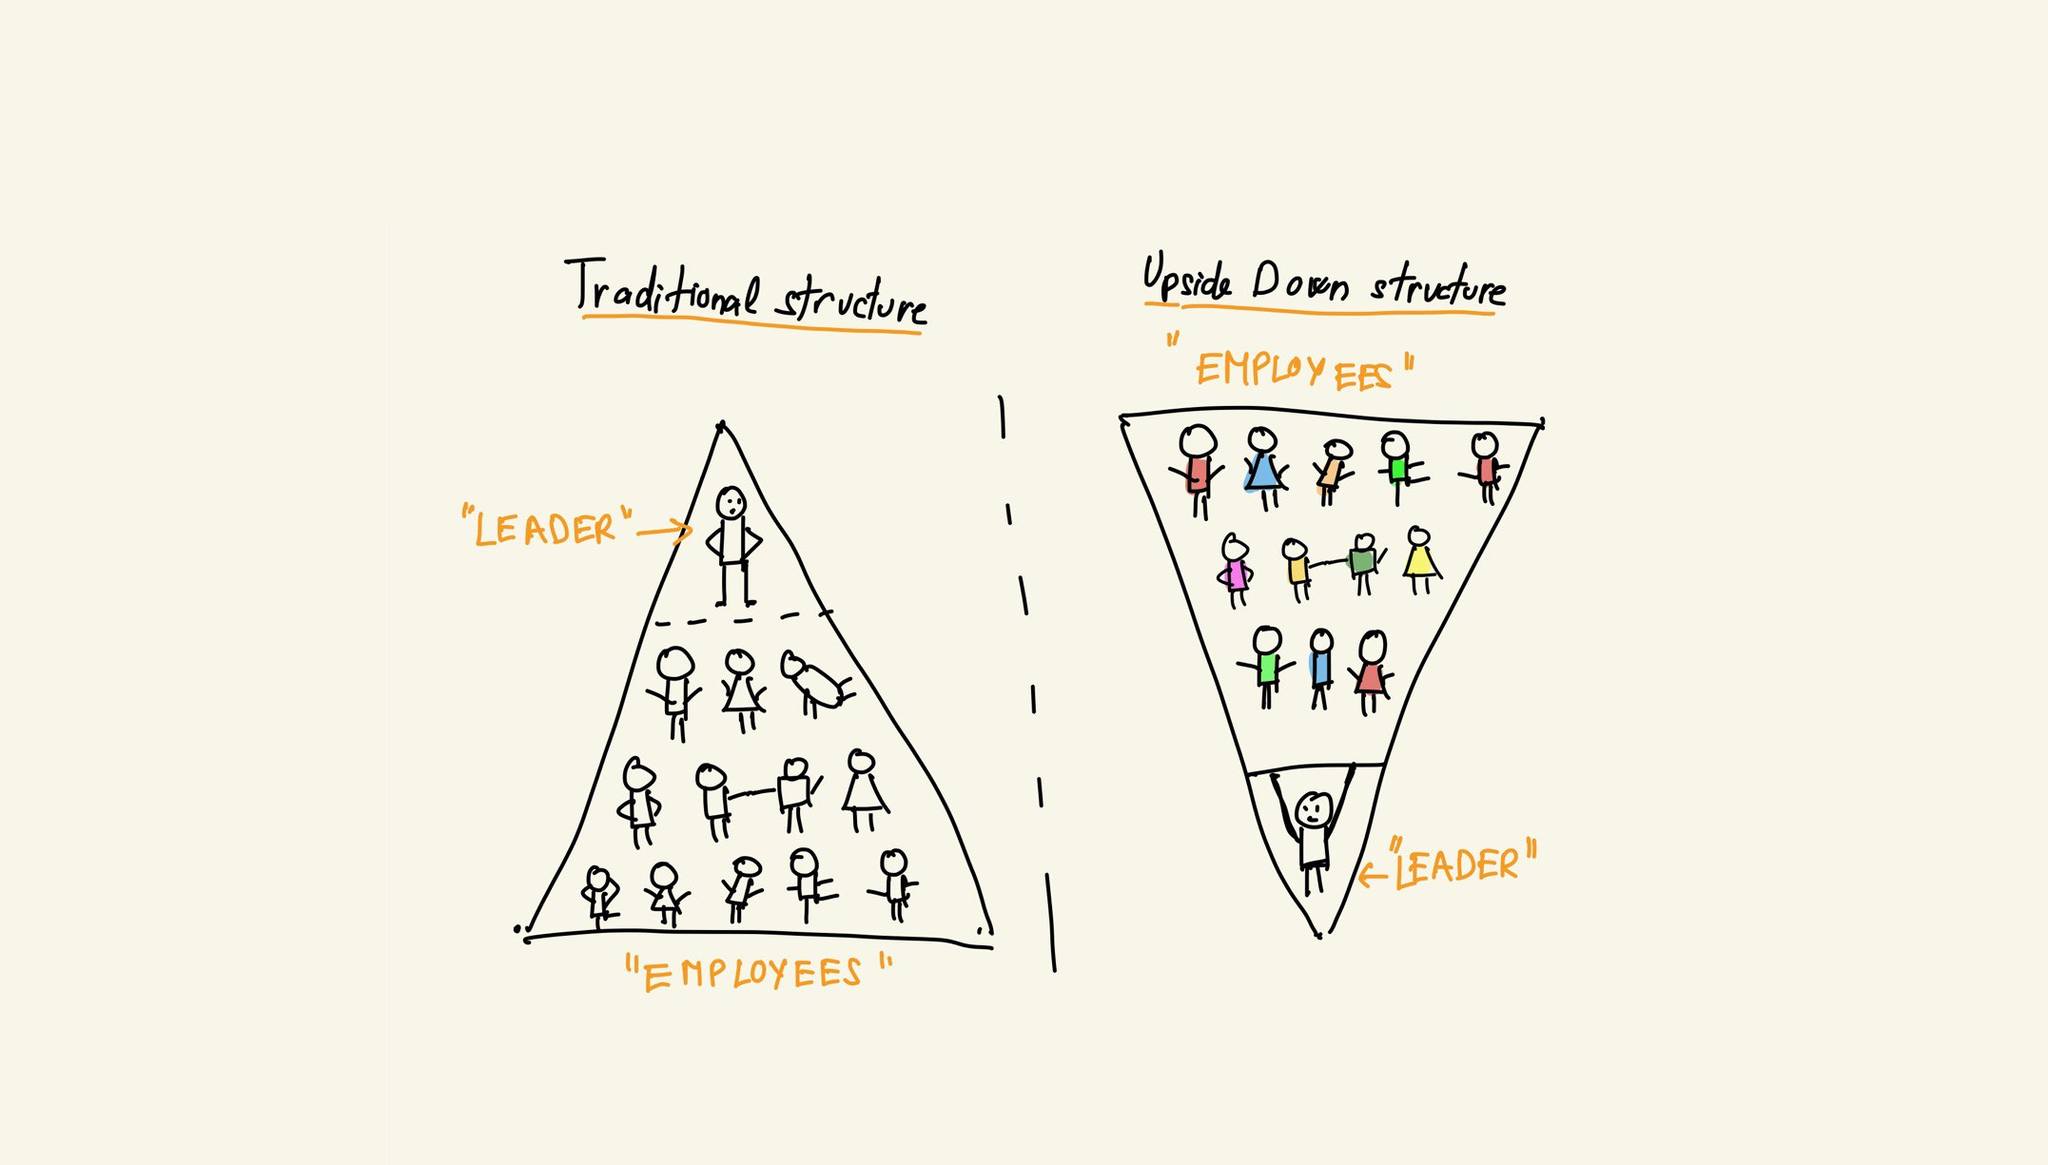 Traditional structure
"LEADER"
"EMPLOYEES"
Upside Down structure
"EMPLOYEES"
"LEADER"